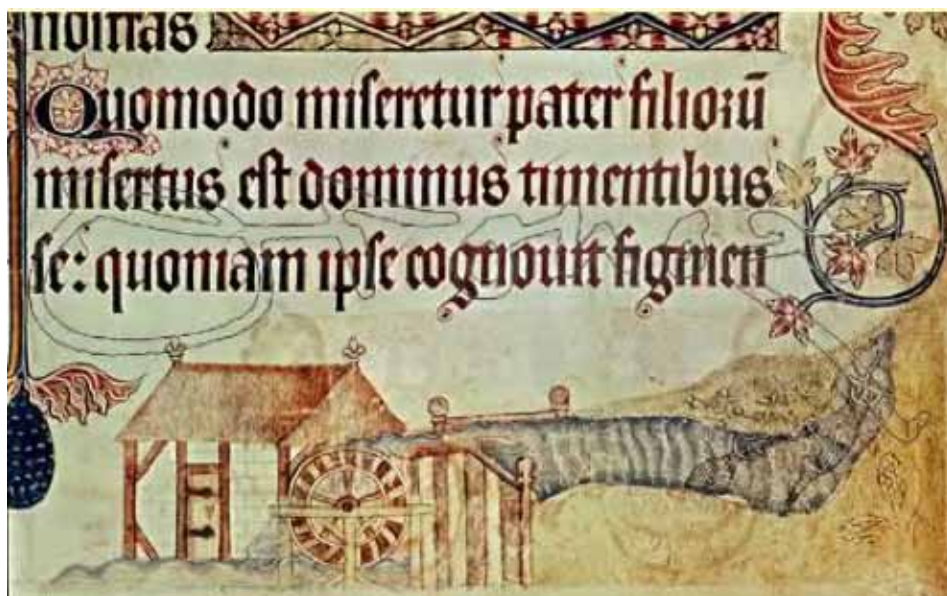 noſtras
Quomodo miſeretur pater filiorū
miſertus eſt dominus timentibus
ſe: quoniam ipſe cognouit figmen